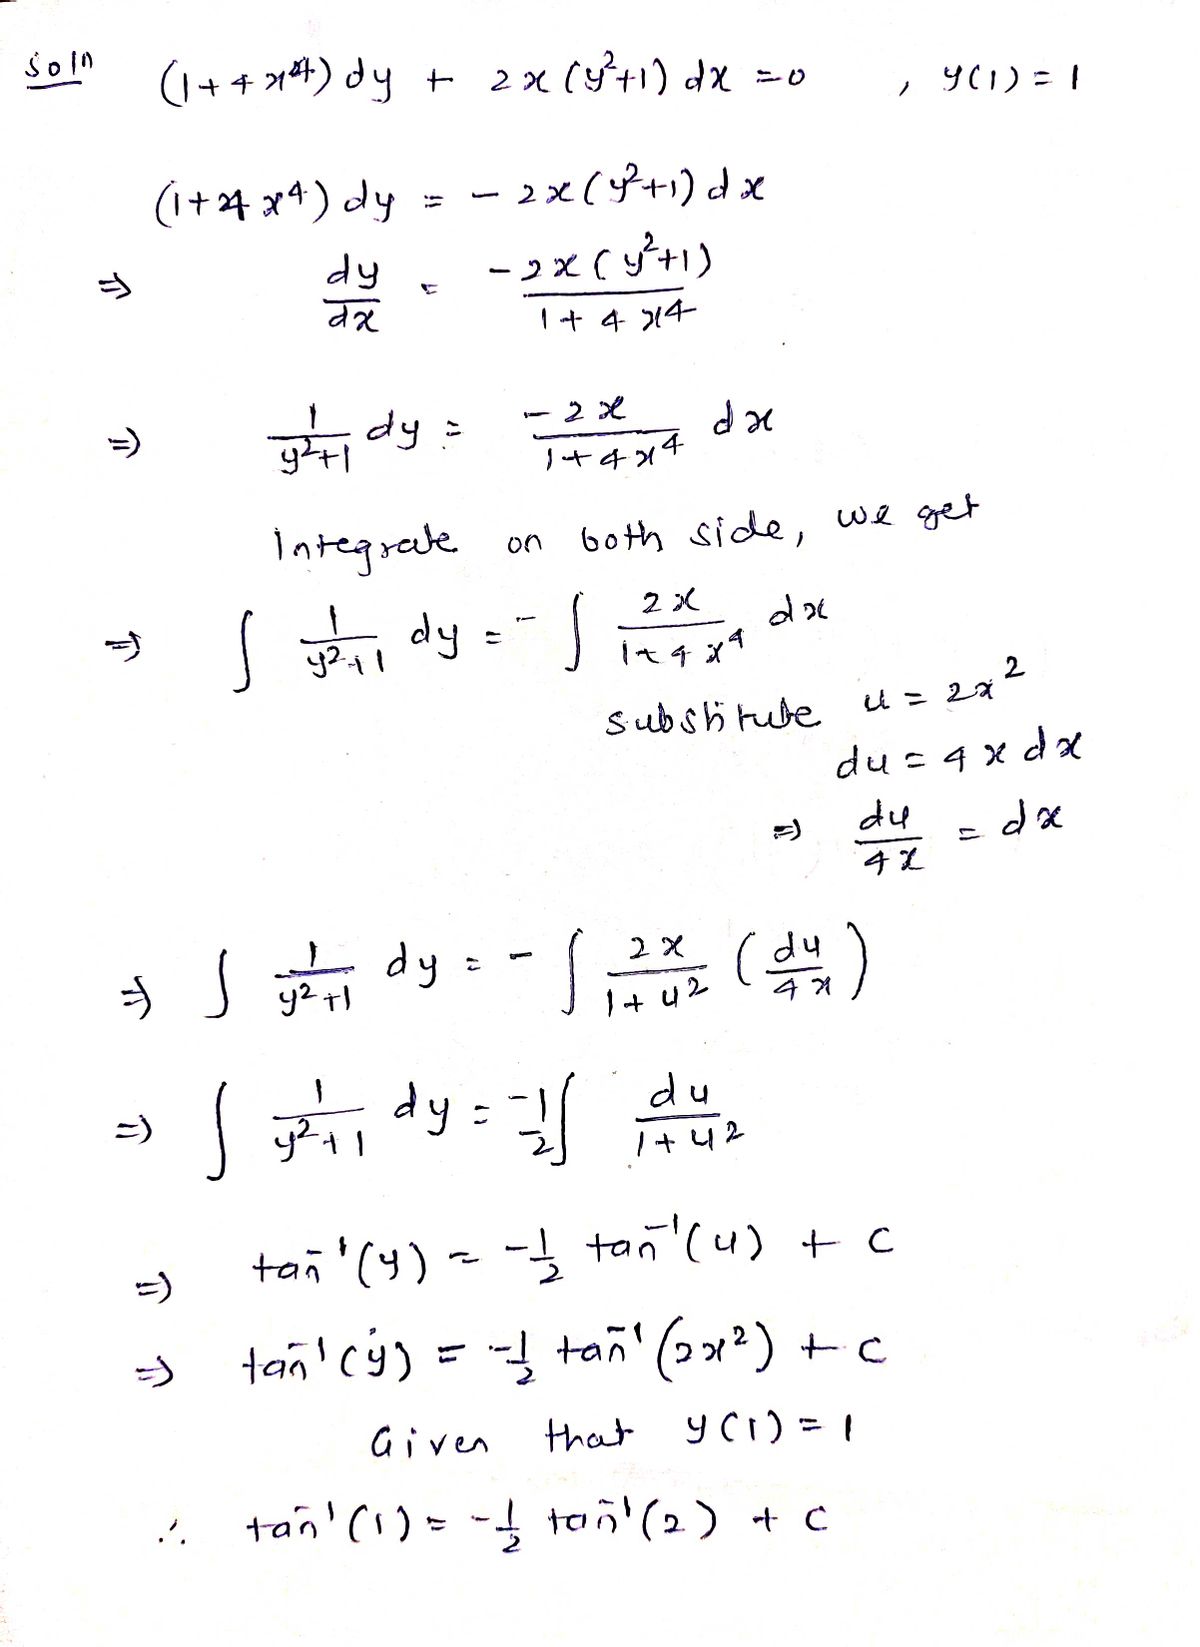 Soln (1+4x⁴) dy + 2x(y²+1) dx = 0 , y(1) = 1
(1+4x⁴) dy = - 2x(y²+1) dx
⇒ dy/dx = -2x(y²+1)/(1+4x⁴)
⇒ 1/(y²+1) dy = -2x/(1+4x⁴) dx
Integrate on both side, we get
⇒ ∫ 1/(y²+1) dy = - ∫ 2x/(1+4x⁴) dx
substitute u = 2x²
du = 4x dx
⇒ du/4x = dx
⇒ ∫ 1/(y²+1) dy = - ∫ 2x/(1+u²) (du/4x)
⇒ ∫ 1/(y²+1) dy = -1/2 ∫ du/(1+u²)
⇒ tan⁻¹(y) = -1/2 tan⁻¹(u) + c
⇒ tan⁻¹(y) = -1/2 tan⁻¹(2x²) + c
Given that y(1) = 1
∴ tan⁻¹(1) = -1/2 tan⁻¹(2) + c